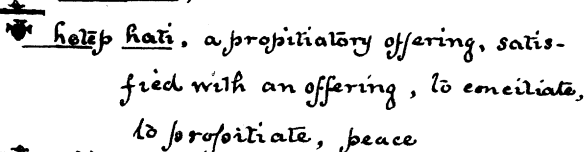 hotep hati, a propitiatory offering, satis-
fied with an offering, to conciliate,
to propitiate, peace